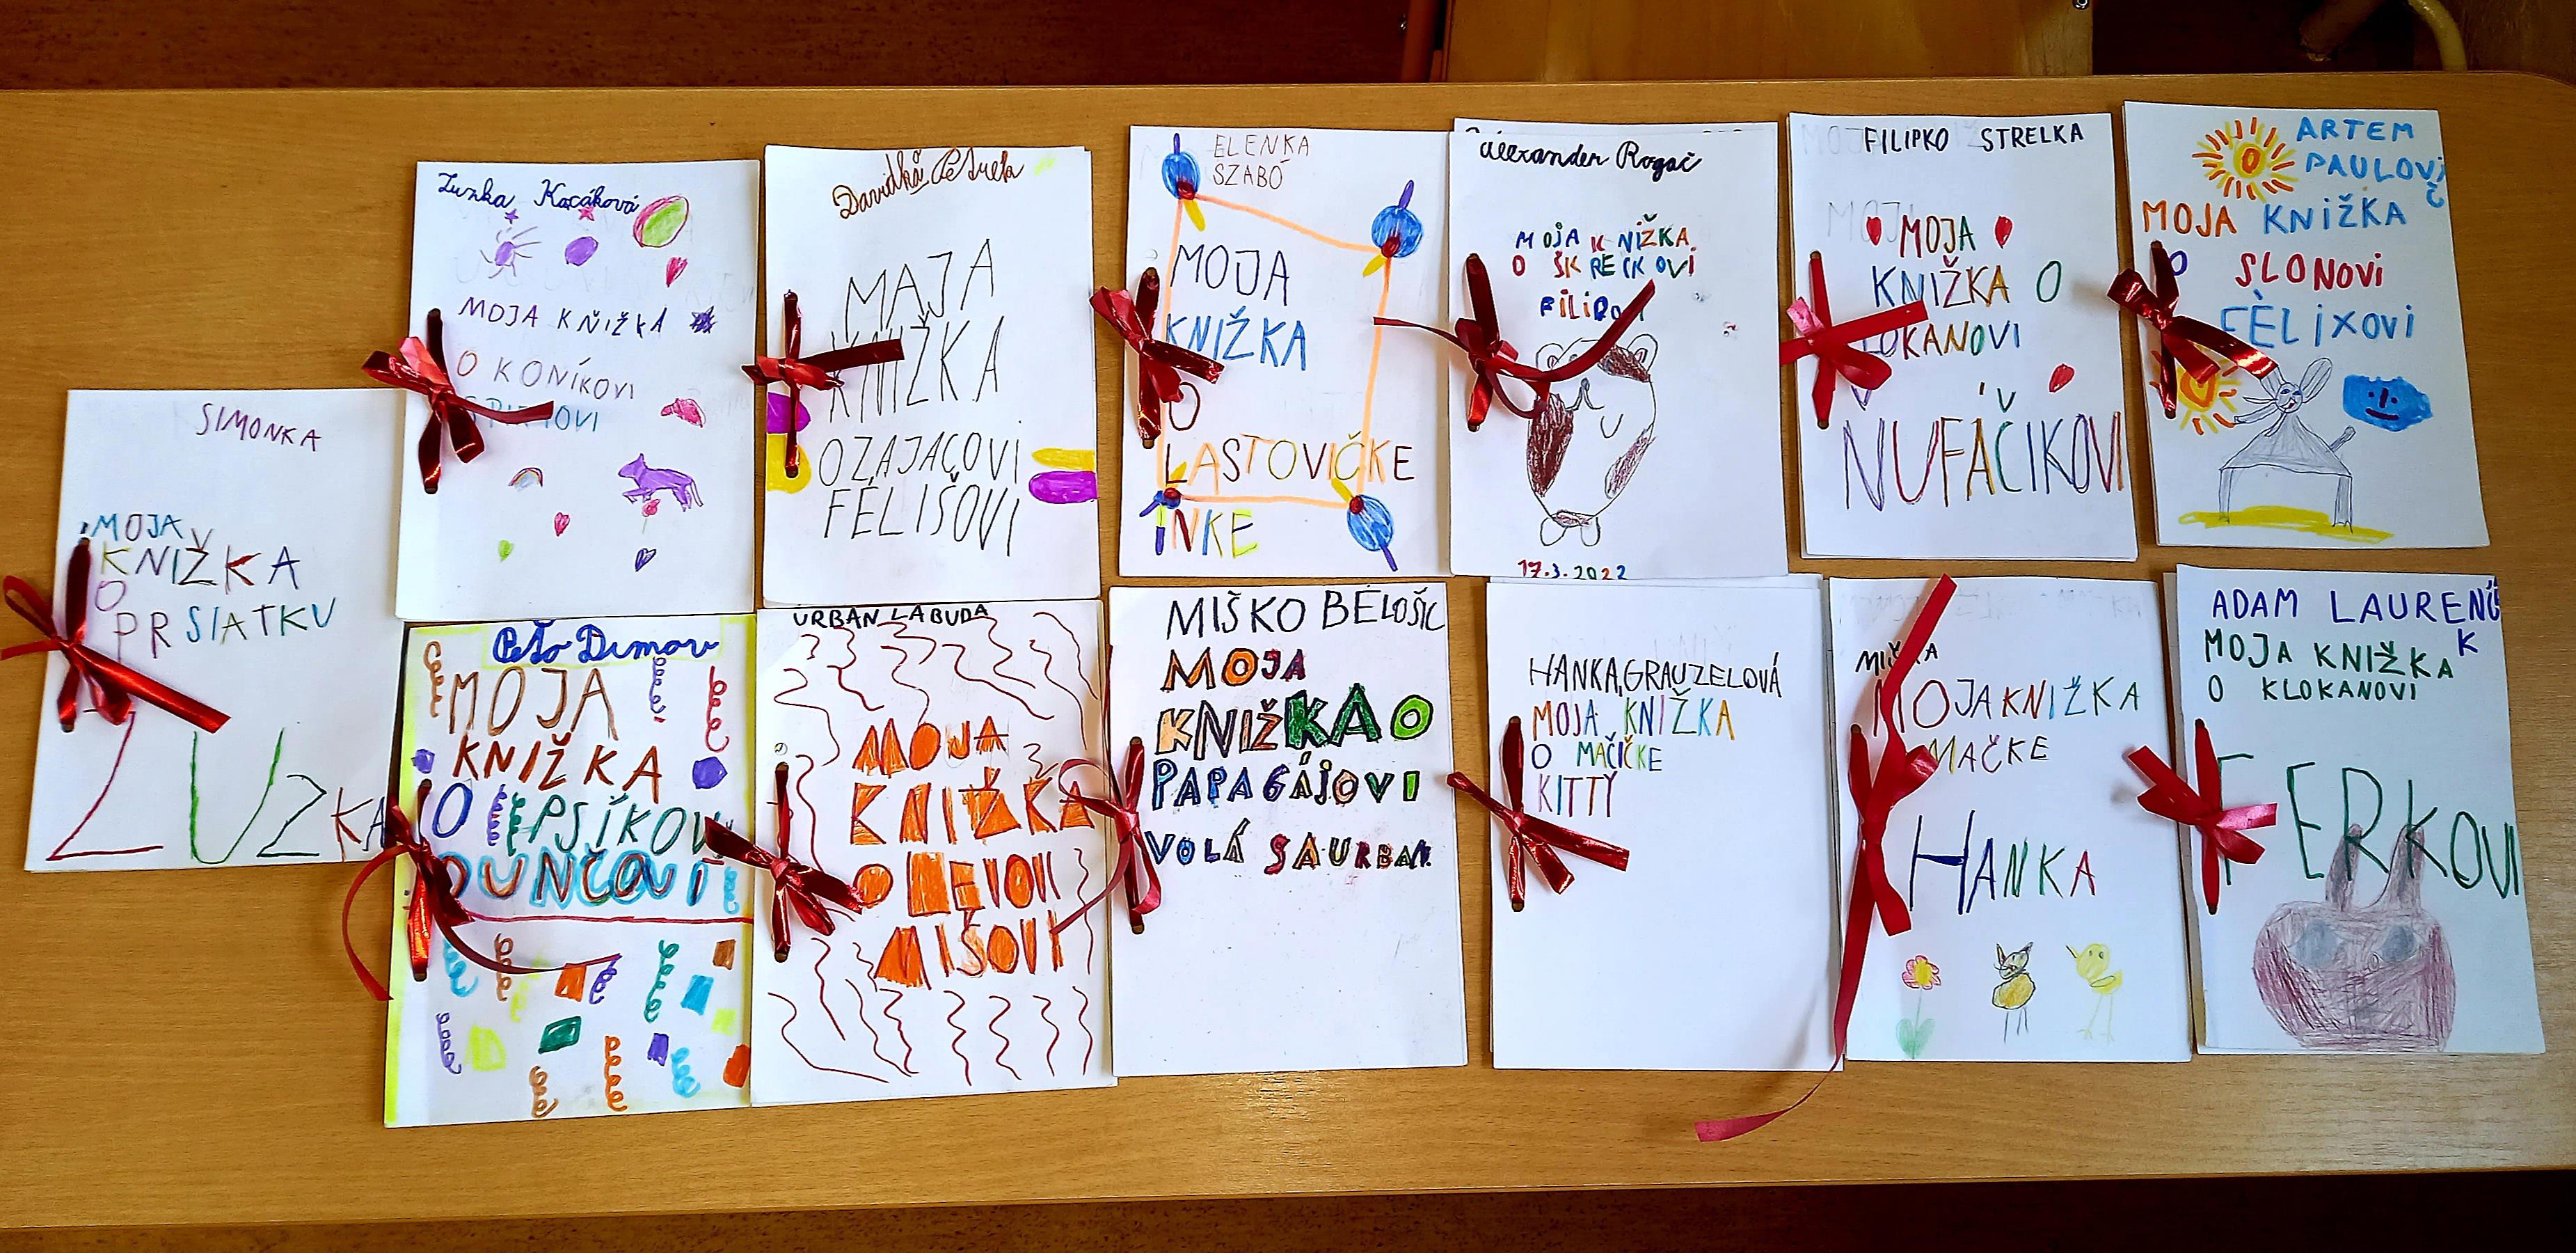 SIMONKA
MOJA
KNIŽKA
O
PRSIATKU
ZUZKA
Zuzka Kacáková
MOJA KNIŽKA
O KONÍKOVI
Davidkó Petrek
MAJA
KNIŽKA
OZAJAČOVI
FÉLIŠOVI
ELENKA
SZABÓ
MOJA
KNIŽKA
O
LASTOVIČKE
INKE
Alexander Rogač
MOJA KNIŽKA
O ŠKREČKOVI
FILIPO
17.3.2022
FILIPKO STRELKA
MOJA
KNIŽKA O
KLOKANOVI
ŇUFÁČIKOVI
ARTEM
PAULOVI
Č
MOJA KNIŽKA
O SLONOVI
FÈLIXOVI
Peťo Dimov
MOJA
KNIŽKA
O PSÍKOVI
DUNČOVI
URBAN LABUDA
MOJA
KNIŽKA
O
MIŠOVI
MIŠKO BÉLOŠIC
MOJA
KNIŽKA O
PAPAGÁJOVI
VOLÁ SAURBAN
HANKA GRAUZELOVÁ
MOJA KNIŽKA
O MAČIČKE
KITTY
MIŠKA
MOJA KNIŽKA
MAČKE
HANKA
ADAM LAURENČÍ
K
MOJA KNIŽKA
O KLOKANOVI
FERKOVI